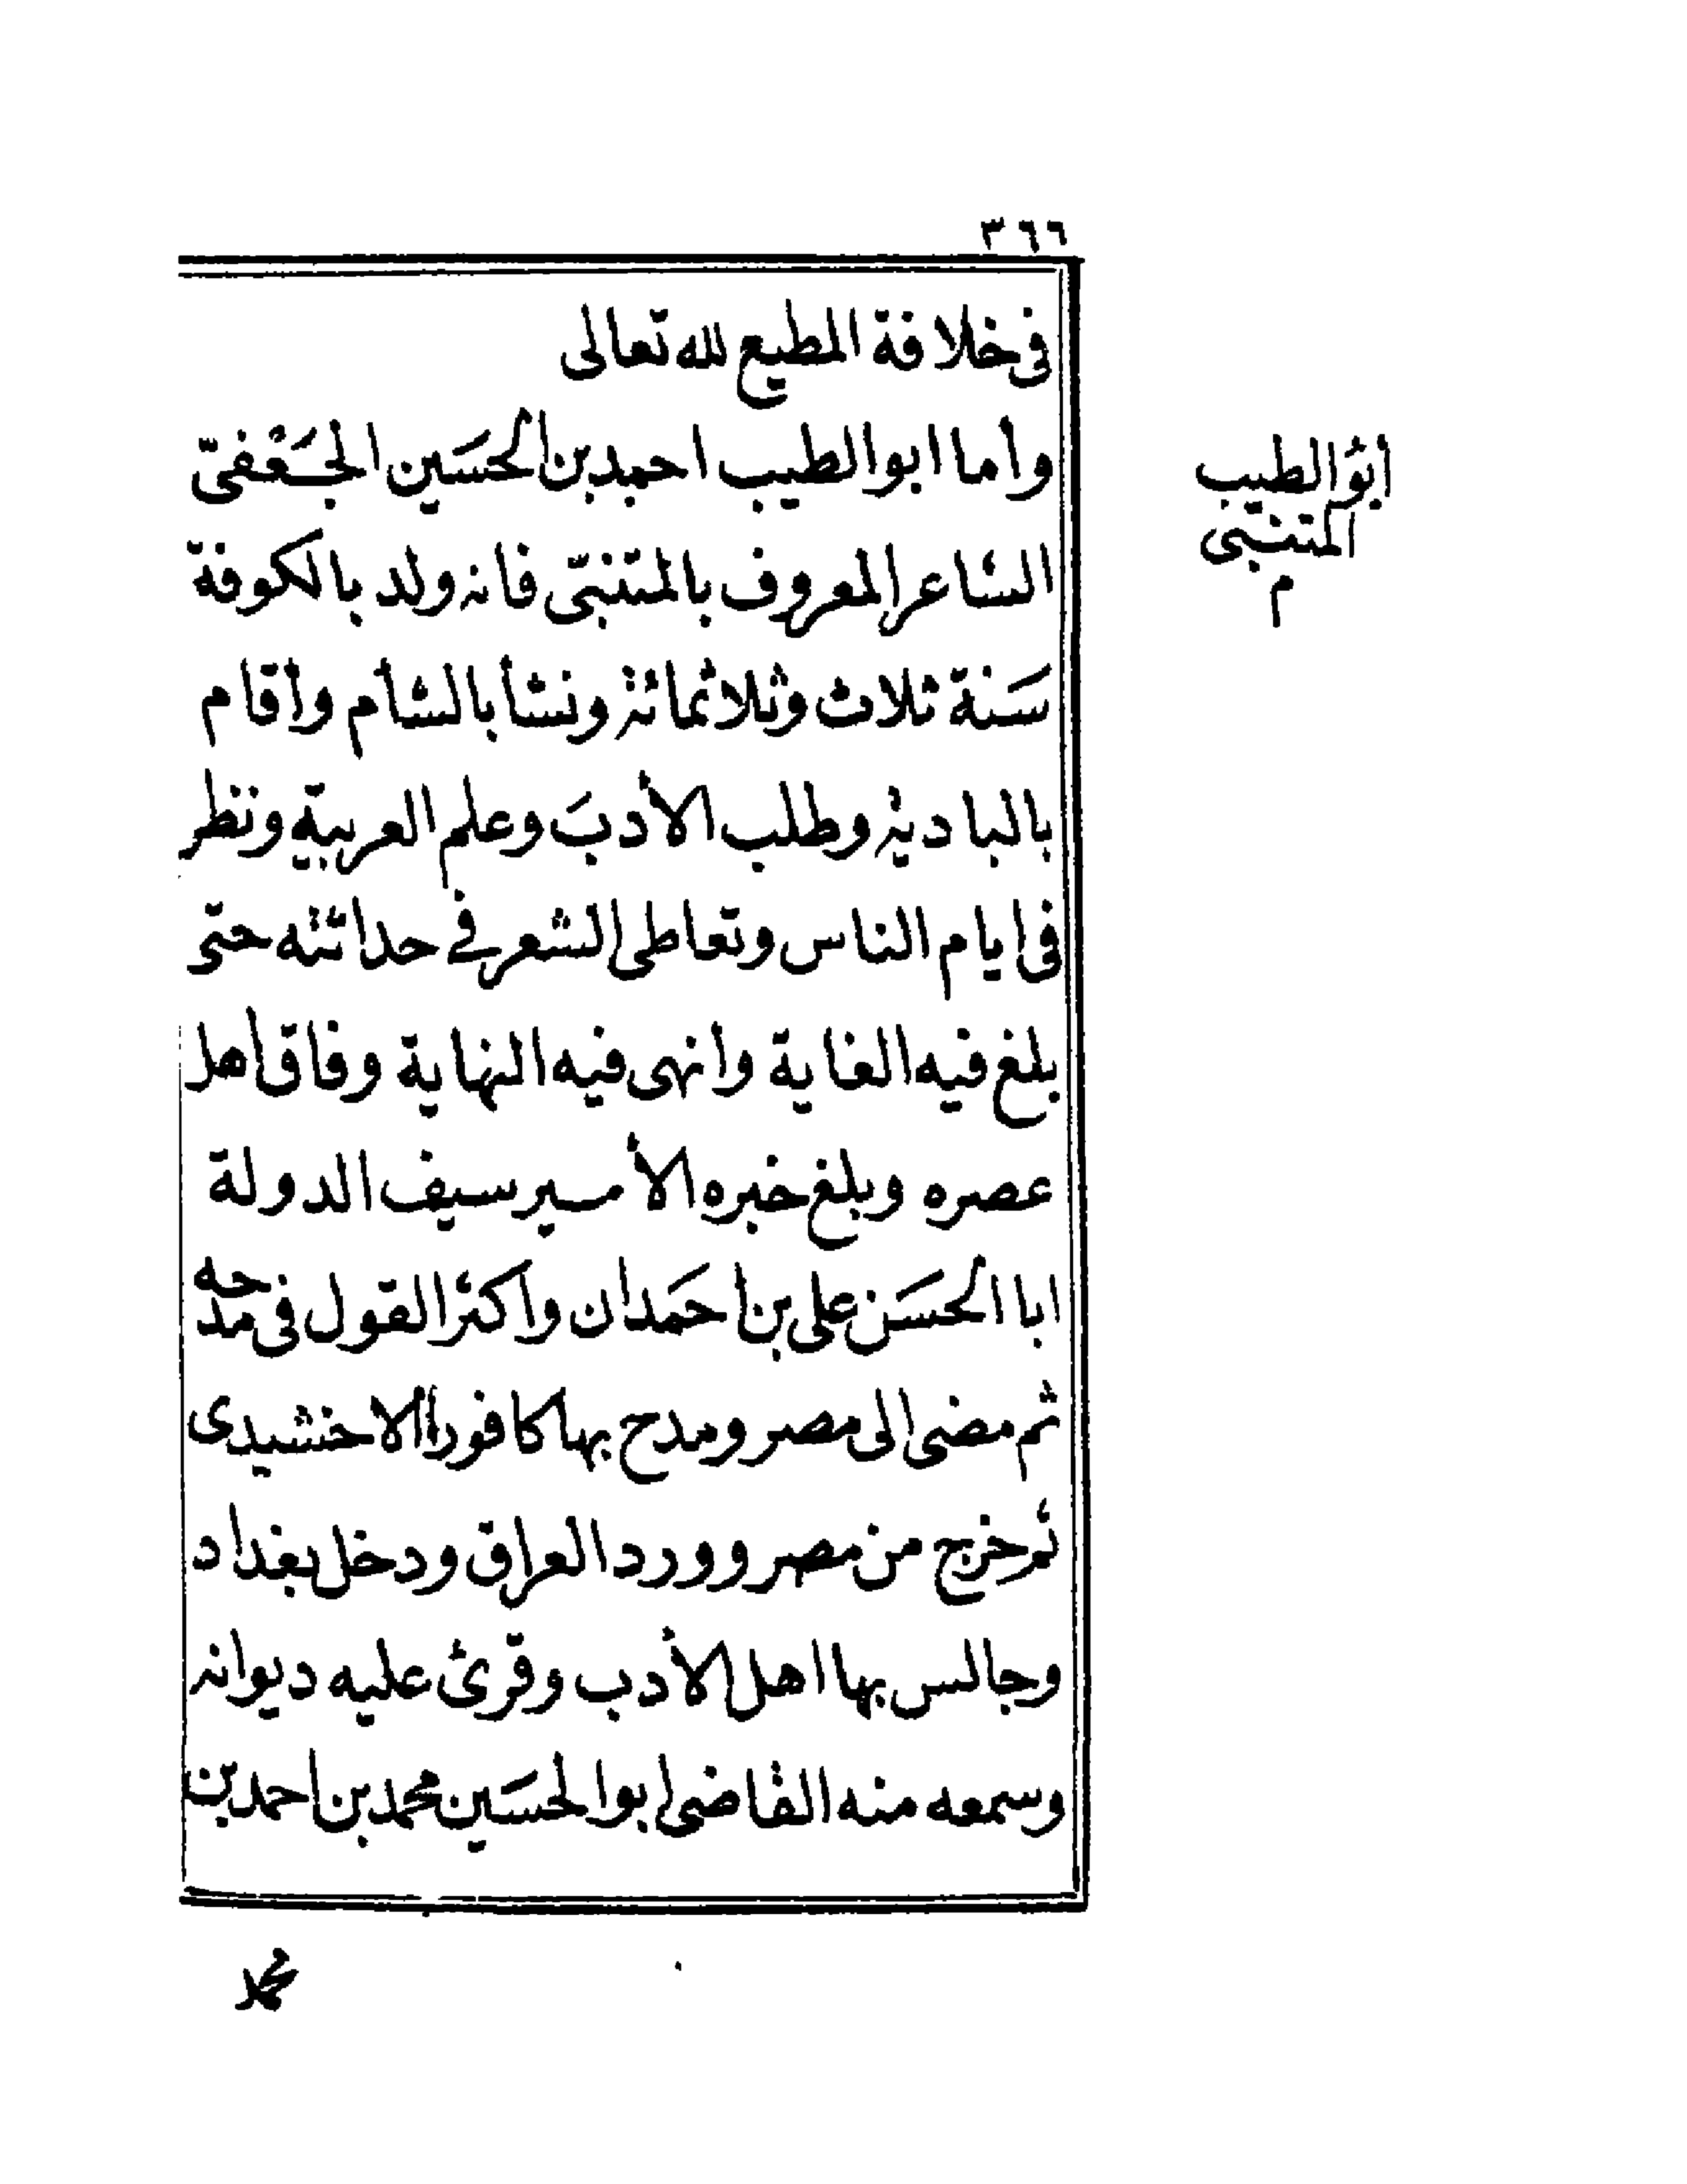 ٣٦٦
فى خلافة المطيع لله تعالى
وأما ابو الطيب احمد بن الحسَين الجَعْفىّ
الشاعر المعروف بالمتنبّى فانه ولد بالكوفة
سَنة ثلاث وثلاثمائة ونشأ بالشأم وأقام
بالبادية وطلب الأدبَ وعلم العربية ونظر
فى ايام الناس وتعاطى الشعر فى حداثته حتى
بلغ فيه الغاية وانهى فيه النهاية وفاق أهل
عصره وبلغ خبره الأمير سيف الدولة
ابا الحسَن على بن حمَدان واكثر القول فى مدحه
ثم مضى الى مصر ومدح بها كافورا الاخشيدى
ثم خرج من مصر وورد العراق ودخل بغداد
وجالس بها اهل الأدب وقرئ عليه ديوانه
وسمعه منه القاضى ابو الحسَين محمد بن احمد بن
محمد
أبوُ الطيب
المتنبى
م